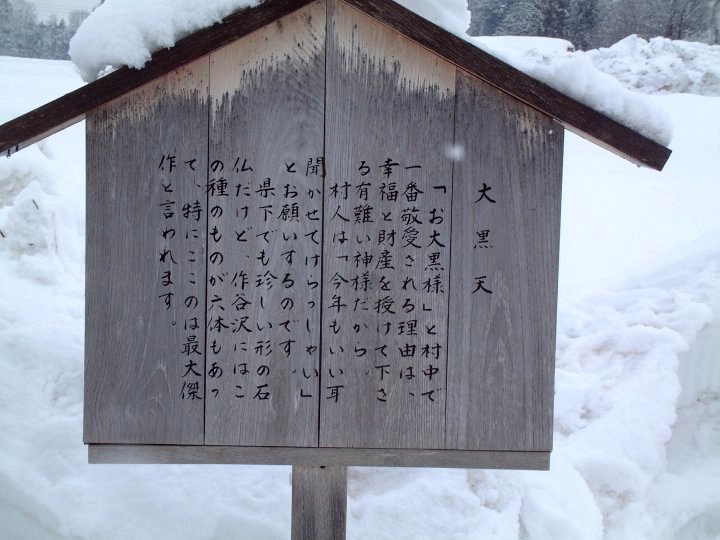 大黒天
「お大黒様」と村中で
一番敬愛される理由は、
幸福と財産を授けて下さ
る有難い神様だから。
村人は「今年もいい耳
聞かせてけらっしゃい」
とお願いするのです。
県下でも珍しい形の石
仏だけど、作谷沢にはこ
の種のものが六体もあっ
て、特にここのは最大傑
作と言われます。